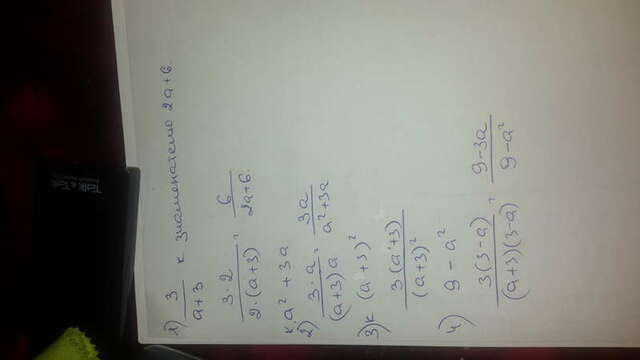 1) 3/(a+3) к знаменателю 2a+6.
3·2/(2·(a+3)) = 6/(2a+6)
к a² + 3a
2) 3·a/((a+3)a) = 3a/(a²+3a)
3) к (a+3)²
3(a+3)/(a+3)²
4) 9 - a²
3(3-a)/((a+3)(3-a)) = (9-3a)/(9-a²)
Talk & Talk